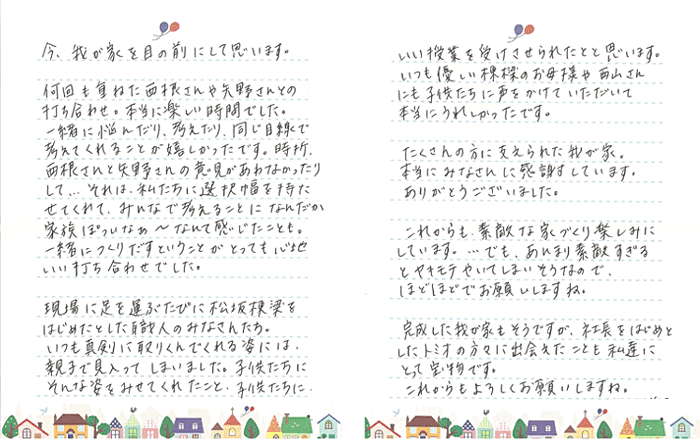 今、我が家を目の前にして思います。
何回も重ねた西根さんや矢野さんとの
打ち合わせ。本当に楽しい時間でした。
一緒に悩んだり、考えたり、同じ目線で
考えてくれることが嬉しかったです。時折、
西根さんと矢野さんの意見があわなかったり
して… それは、私たちに選択幅を持た
せてくれて、みんなで考えることになんだか
家族ぽいなぁ〜なんて感じたことも。
一緒につくりだすということがとっても心地
いい打ち合わせでした。
現場に足を運ぶたびに松坂棟梁を
はじめたとした職人のみなさんたち。
いつも真剣に取りくんでくれる姿には、
親まで見入ってしまいました。子供たちに
そんな姿をみせてくれたこと、子供たちに、
いい授業を受けさせられたとと思います。
いつも優しい棟梁のお母様や西山さん
にも子供たちに声をかけていただいて
本当にうれしかったです。
たくさんの方に支えられた我が家。
本当にみなさんに感謝しています。
ありがとうございました。
これからも、素敵な家づくり楽しみに
しています。…でも、あんまり素敵すぎる
とヤキモチやいてしまいそうなので、
ほどほどでお願いしますね。
完成した我が家もそうですが、社長をはじめと
したトミオの方々に出会えたことも私達に
とって宝物です。
これからもよろしくお願いしますね。